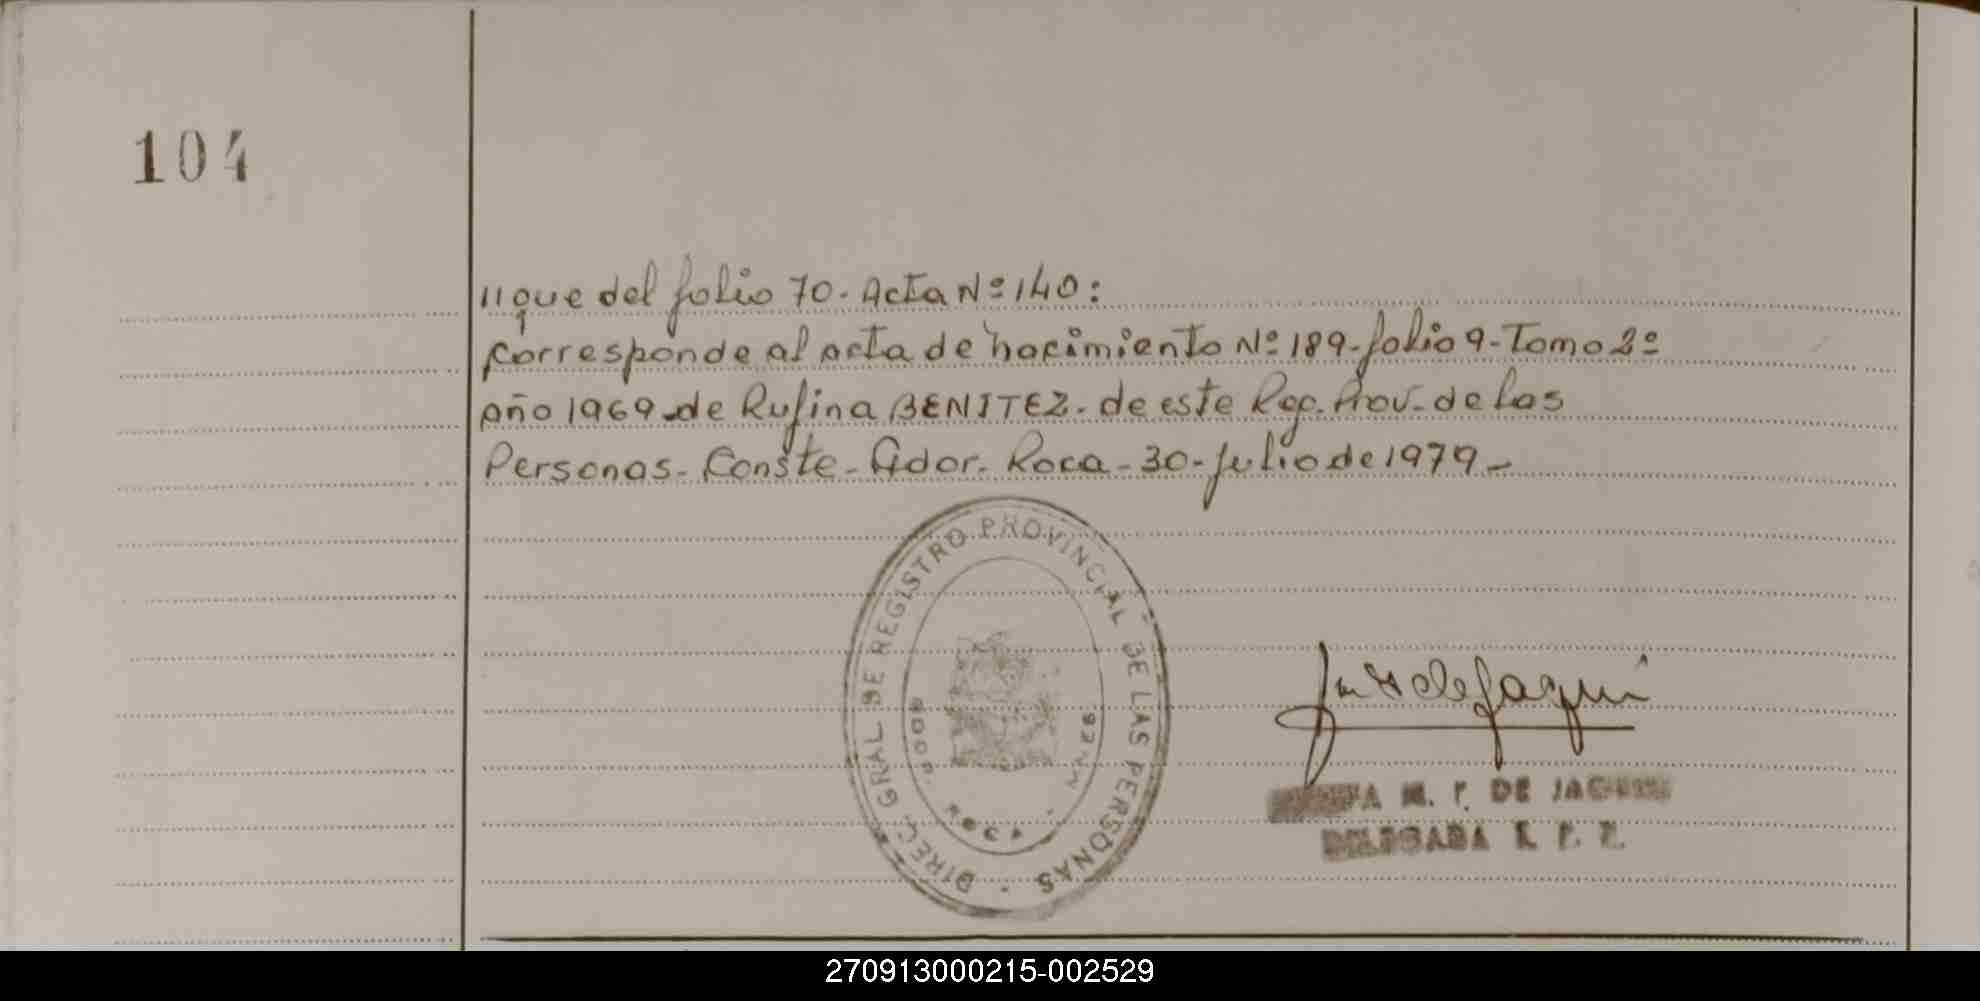 104
11que del folio 70. Acta Nº 140:
Corresponde al acta de nacimiento Nº 189-folio 9-Tomo 2º
año 1969 de Rufina BENITEZ. de este Reg. Prov. de las
Personas. Conste. Gdor. Roca - 30-julio de 1979 -
DIREC. GRAL DE REGISTRO PROVINCIAL DE LAS PERSONAS
ROCA
M. P. DE
DELEGADA
270913000215-002529